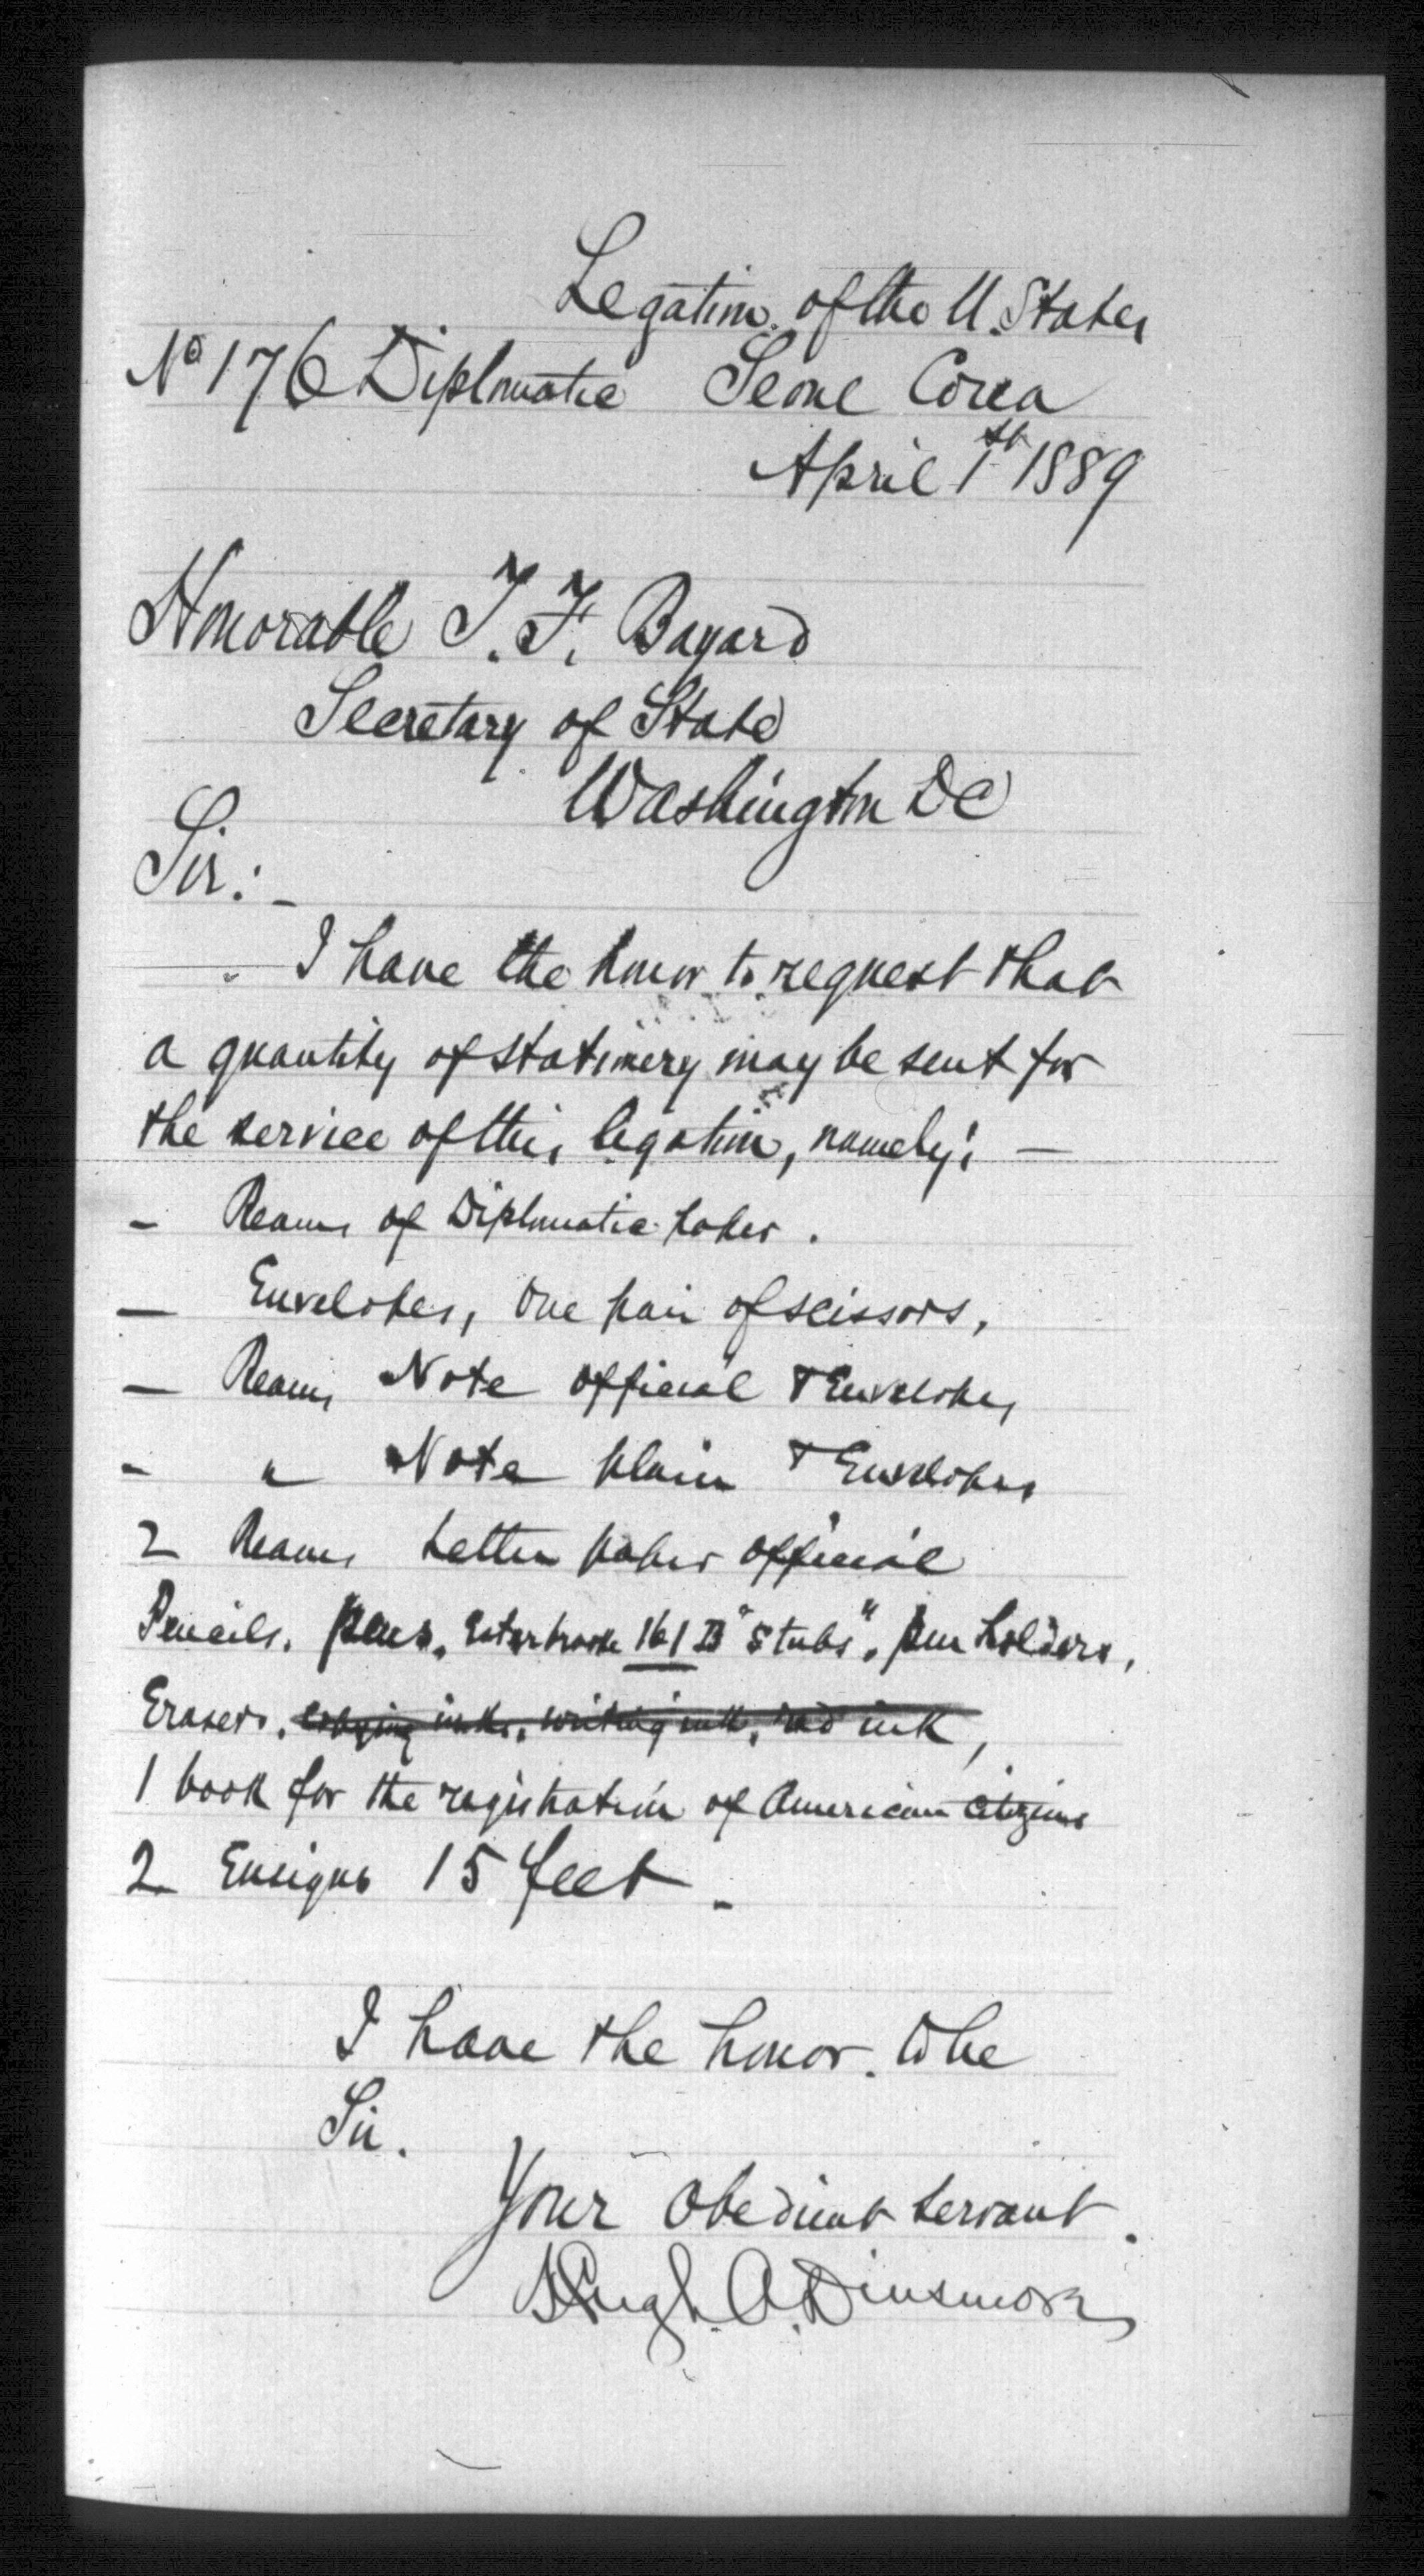 Legation of the U. States
No 176 Diplomatic Seoul Corea
April 1st 1889
Honorable T. F. Bayard
Secretary of State
Washington DC
Sir:-
I have the honor to request that
a quantity of stationery may be sent for
the service of this legation, namely: —
- Reams of Diplomatic paper.
— Envelopes, One pair of scissors,
— Reams Note official & Envelopes
- " Note plain & Envelopes
2 Reams Letter paper official
Pencils, pens, Esterbrook 161 B "Stubs", pen holders,
Erasers, copying inks, writing ink, red ink,
1 book for the registration of American Citizens
2 Ensigns 15 feet -
I have the honor to be
Sir.
Your Obedient Servant.
Hugh A. Dinsmore